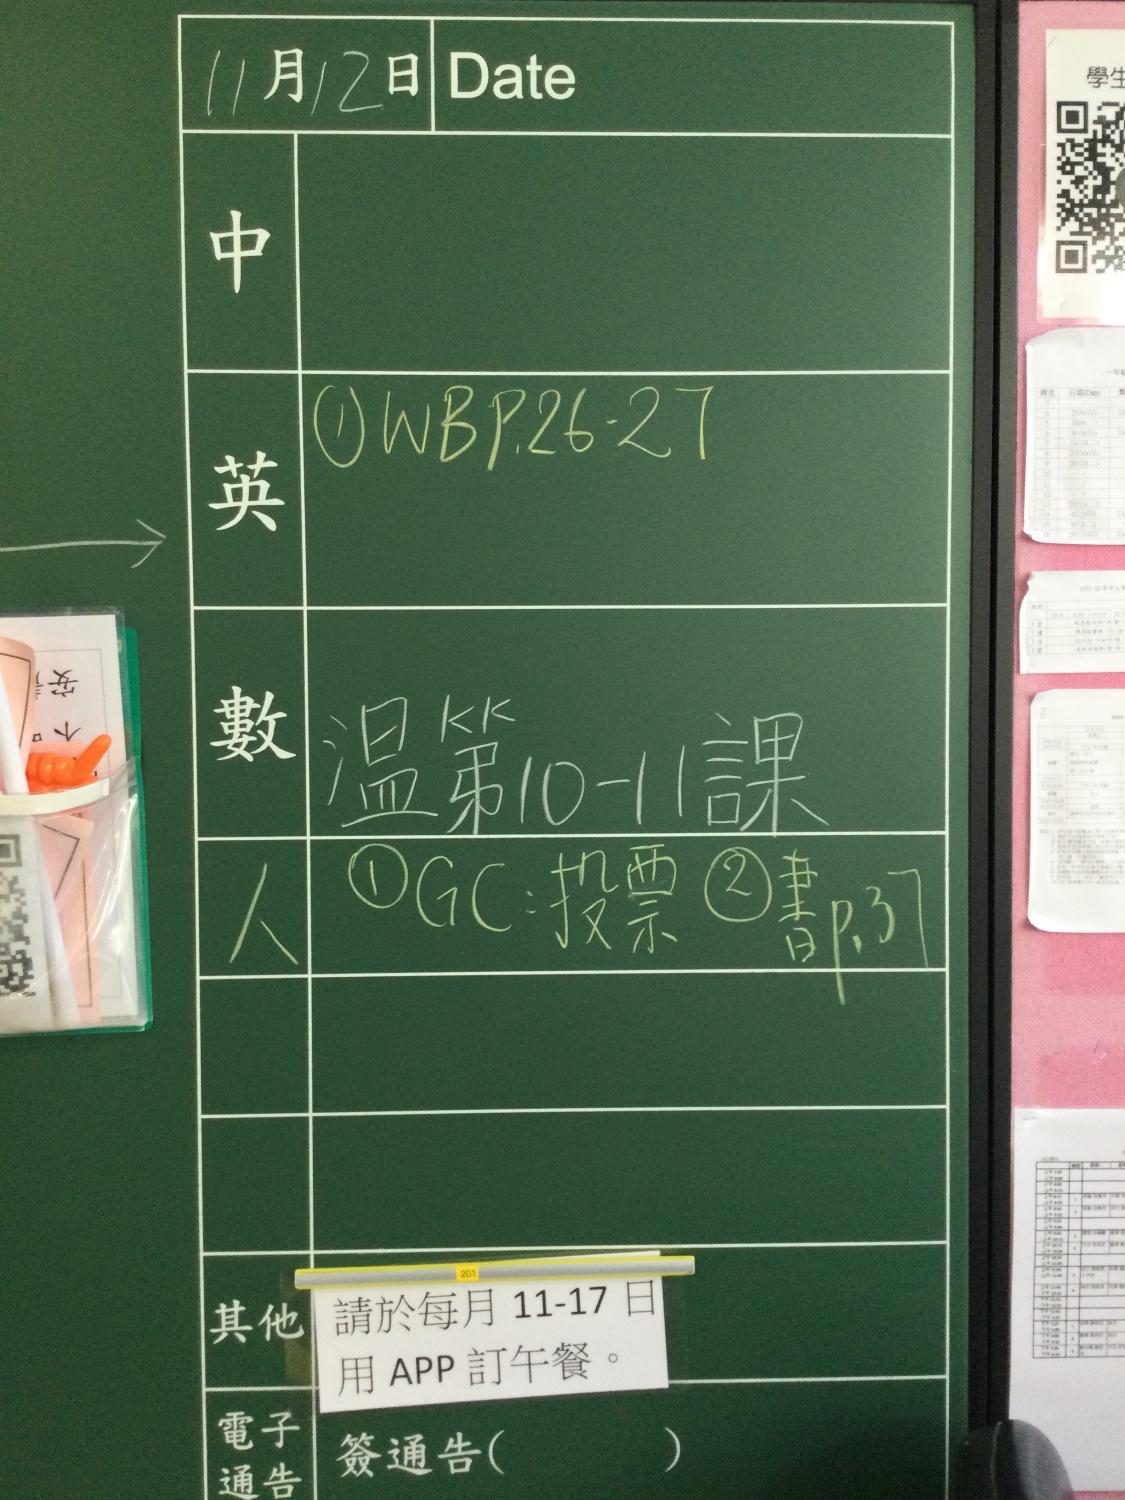 11月12日 Date
中
英 ①WBP.26-27
數 温第10-11課
人 ①GC:投票 ②書p.37
201
其他 請於每月 11-17 日
用 APP 訂午餐。
電子
通告 簽通告( )
學生
安